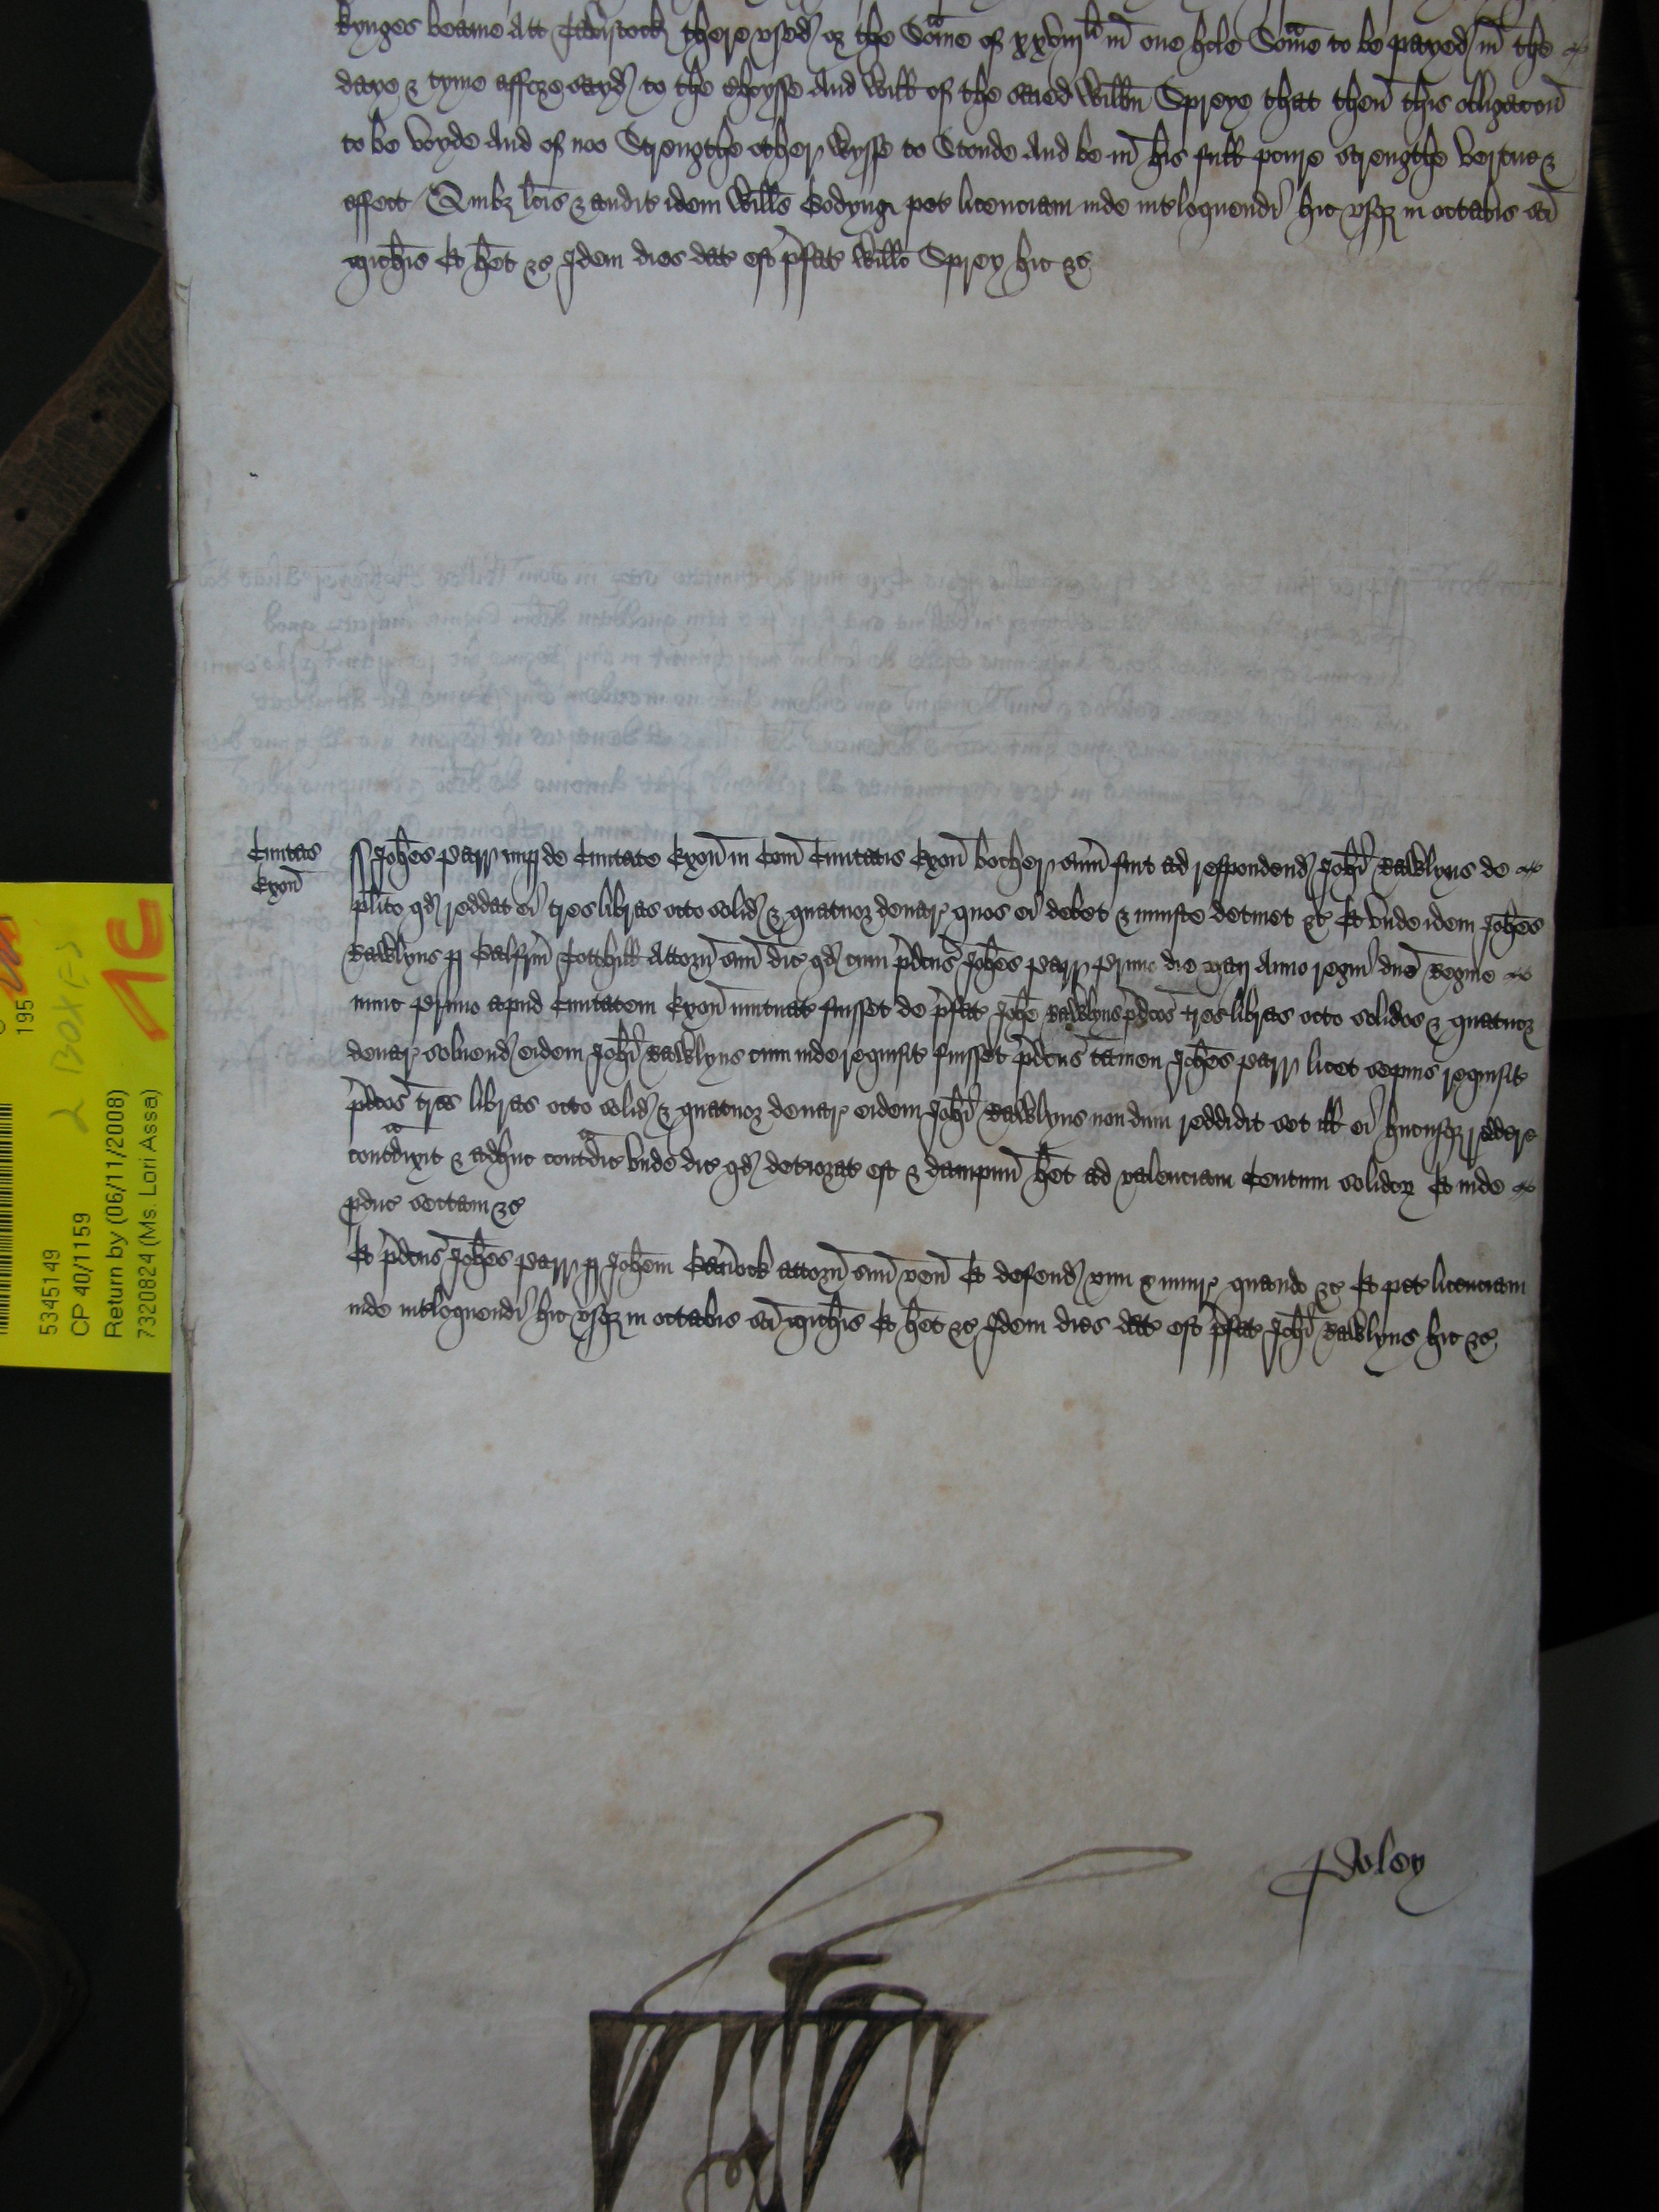 kynges beame Att Tavistock there used or the Some of xxviij li in one hole Some to be payed in the
daye & tyme affore sayd to the choysse And Will of the saied Willm Spreye that then this obligacon
to be voyde And of noo Strengthe other Wysse to Stonde And be in his full powre strengthe vertue &
effect Quibz lcis & audit idem Wills Godyng pet licenciam inde intloquendi hic usqz in octabis sci
Michis Et het &c Idem dies dat est pfat Willo Sprey hic &c
Civitas
Exon
Johes Parr nup de Civitate Exon in Com Civitatis Exon bocher sum fuit ad respondend Johi Rawlyns de
plito qd reddat ei tres libras octo solid & quatuor denar quos ei debet & iniuste detinet &c Et unde idem Johes
Rawlyns p Galfrm Tothill Attorn suu dic qd cum pdcus Johes Parr primo die Maij Anno regni dne Regine
nunc primo apud Civitatem Exon mutuat fuisset de pfat Johe Rawlyns pdcos tres libras octo solidos & quatuor
denar solvend eidem Johi Rawlyns cum inde requisit fuisset pdcus tamen Johes Parr licet sepius requisit
pdcos tres libras octo solid & quatuor denar eidem Johi Rawlyns nondum reddidit set ill ei hucusqz reddere
contdixit & adhuc contdic unde dic qd deteriorat est & dampnu het ad valenciam Centum solidor Et inde
pduc sectam &c
Et pdcus Johes Parr p Johem attorn suu ven Et defend vim & iniur quando &c Et pet licenciam
inde intloquendi hic usqz in octabis sci Michis Et het &c Idem dies dat est pfat Johi Rawlyns hic &c
Poley
195
5345149
CP 40/1159
Return by (06/11/2008)
7320824 (Ms. Lori Assa)
2 BOX
1C